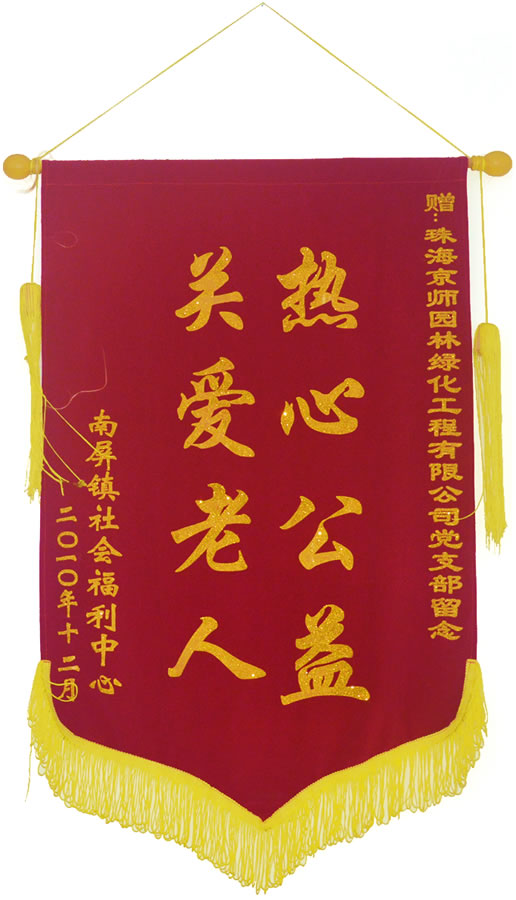 赠:珠海京师园林绿化工程有限公司党支部留念
热心公益
关爱老人
南屏镇社会福利中心
二〇一〇年十二月